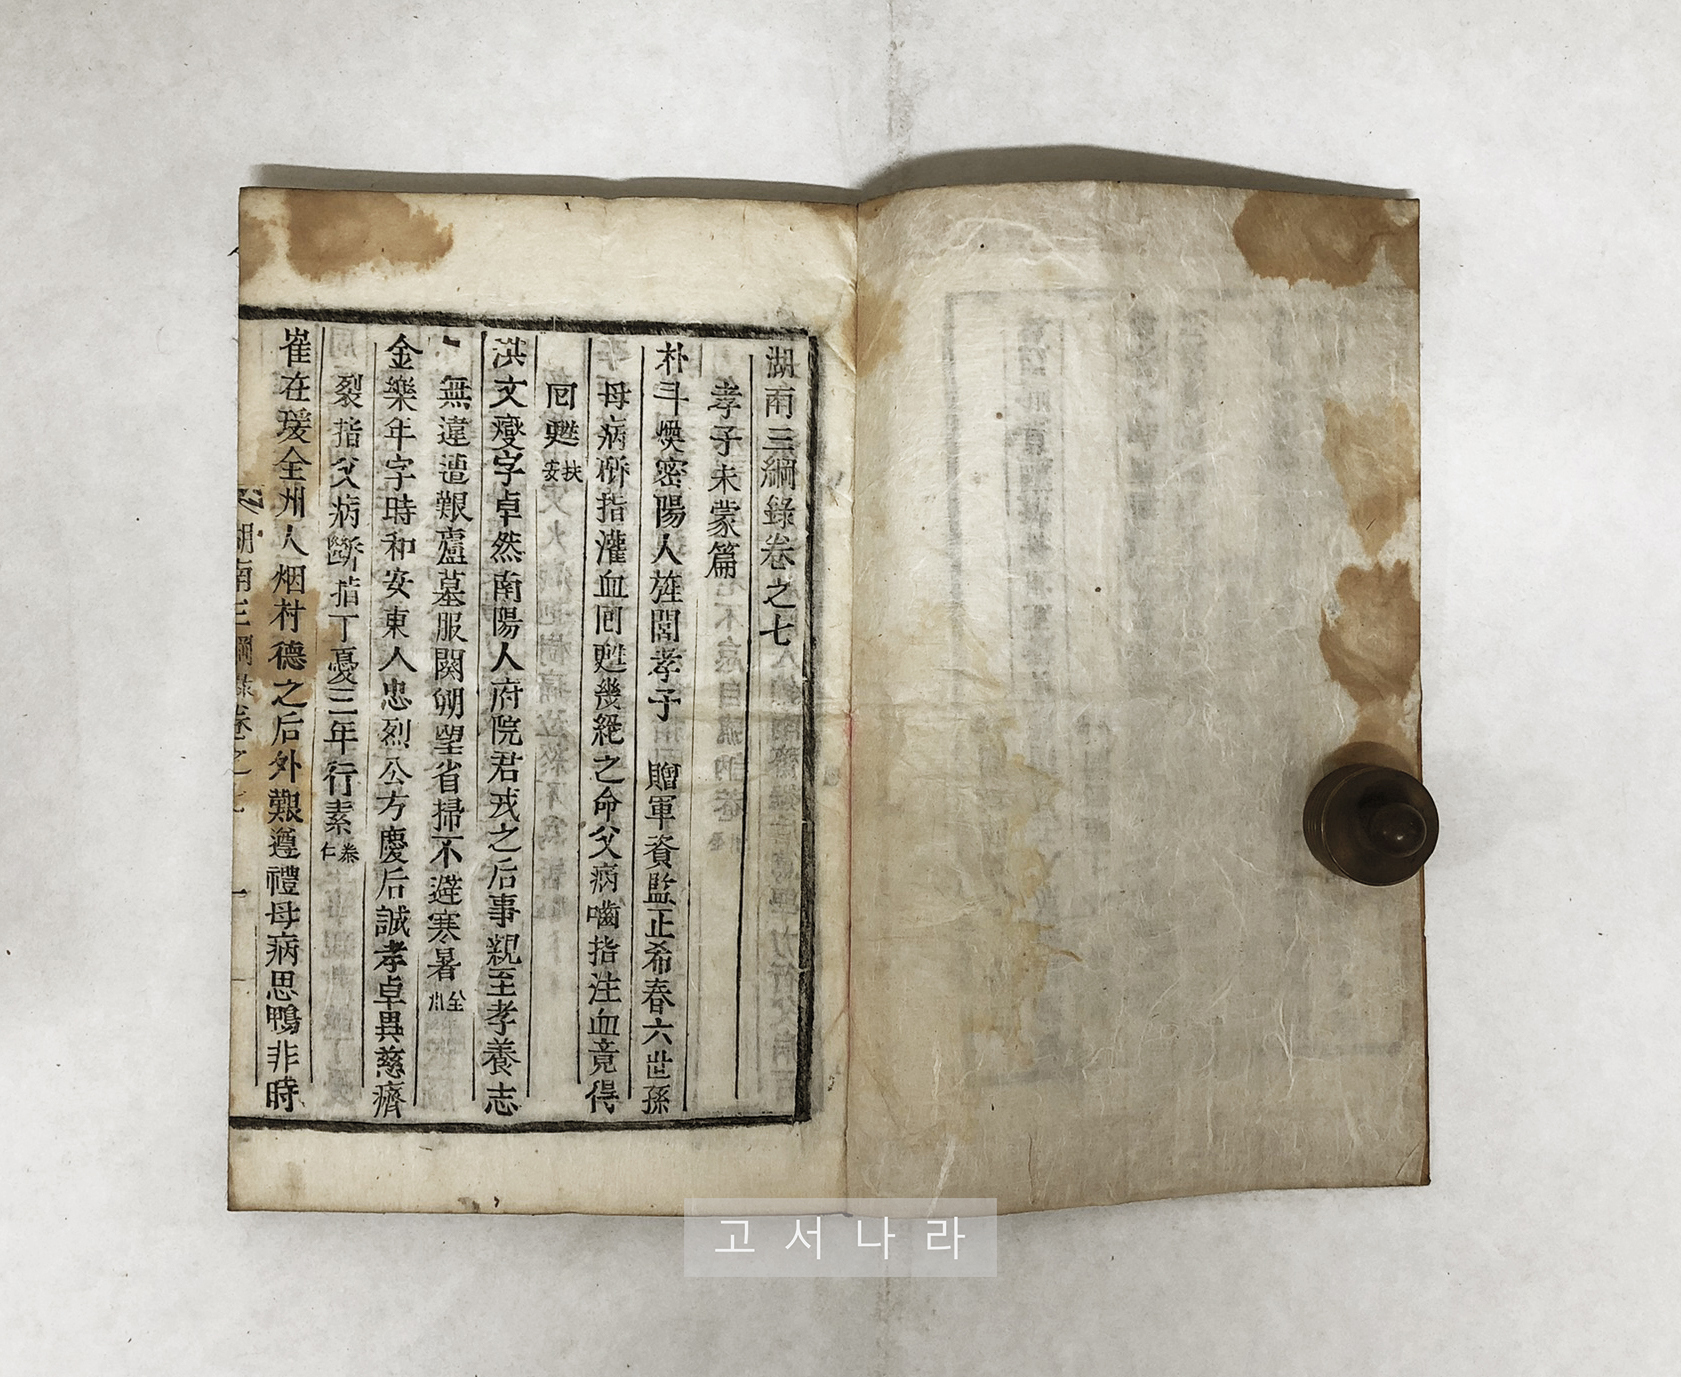 湖南三綱錄卷之七
孝子未蒙篇
朴斗煥密陽人旌閭孝子 贈軍資監正希春六世孫
母病斫指灌血回甦幾絕之命父病嚙指注血竟得
回甦扶安
洪文燮字卓然南陽人府院君戎之后事親至孝養志
無違遭艱廬墓服闋朔望省掃不避寒暑全州
金樂年字時和安東人忠烈公方慶后誠孝卓異慈癠
裂指父病斷指丁憂三年行素泰仁
崔在瑗全州人烟村德之后外艱遵禮母病思鴨非時
湖南三綱錄卷之七 一
고서나라